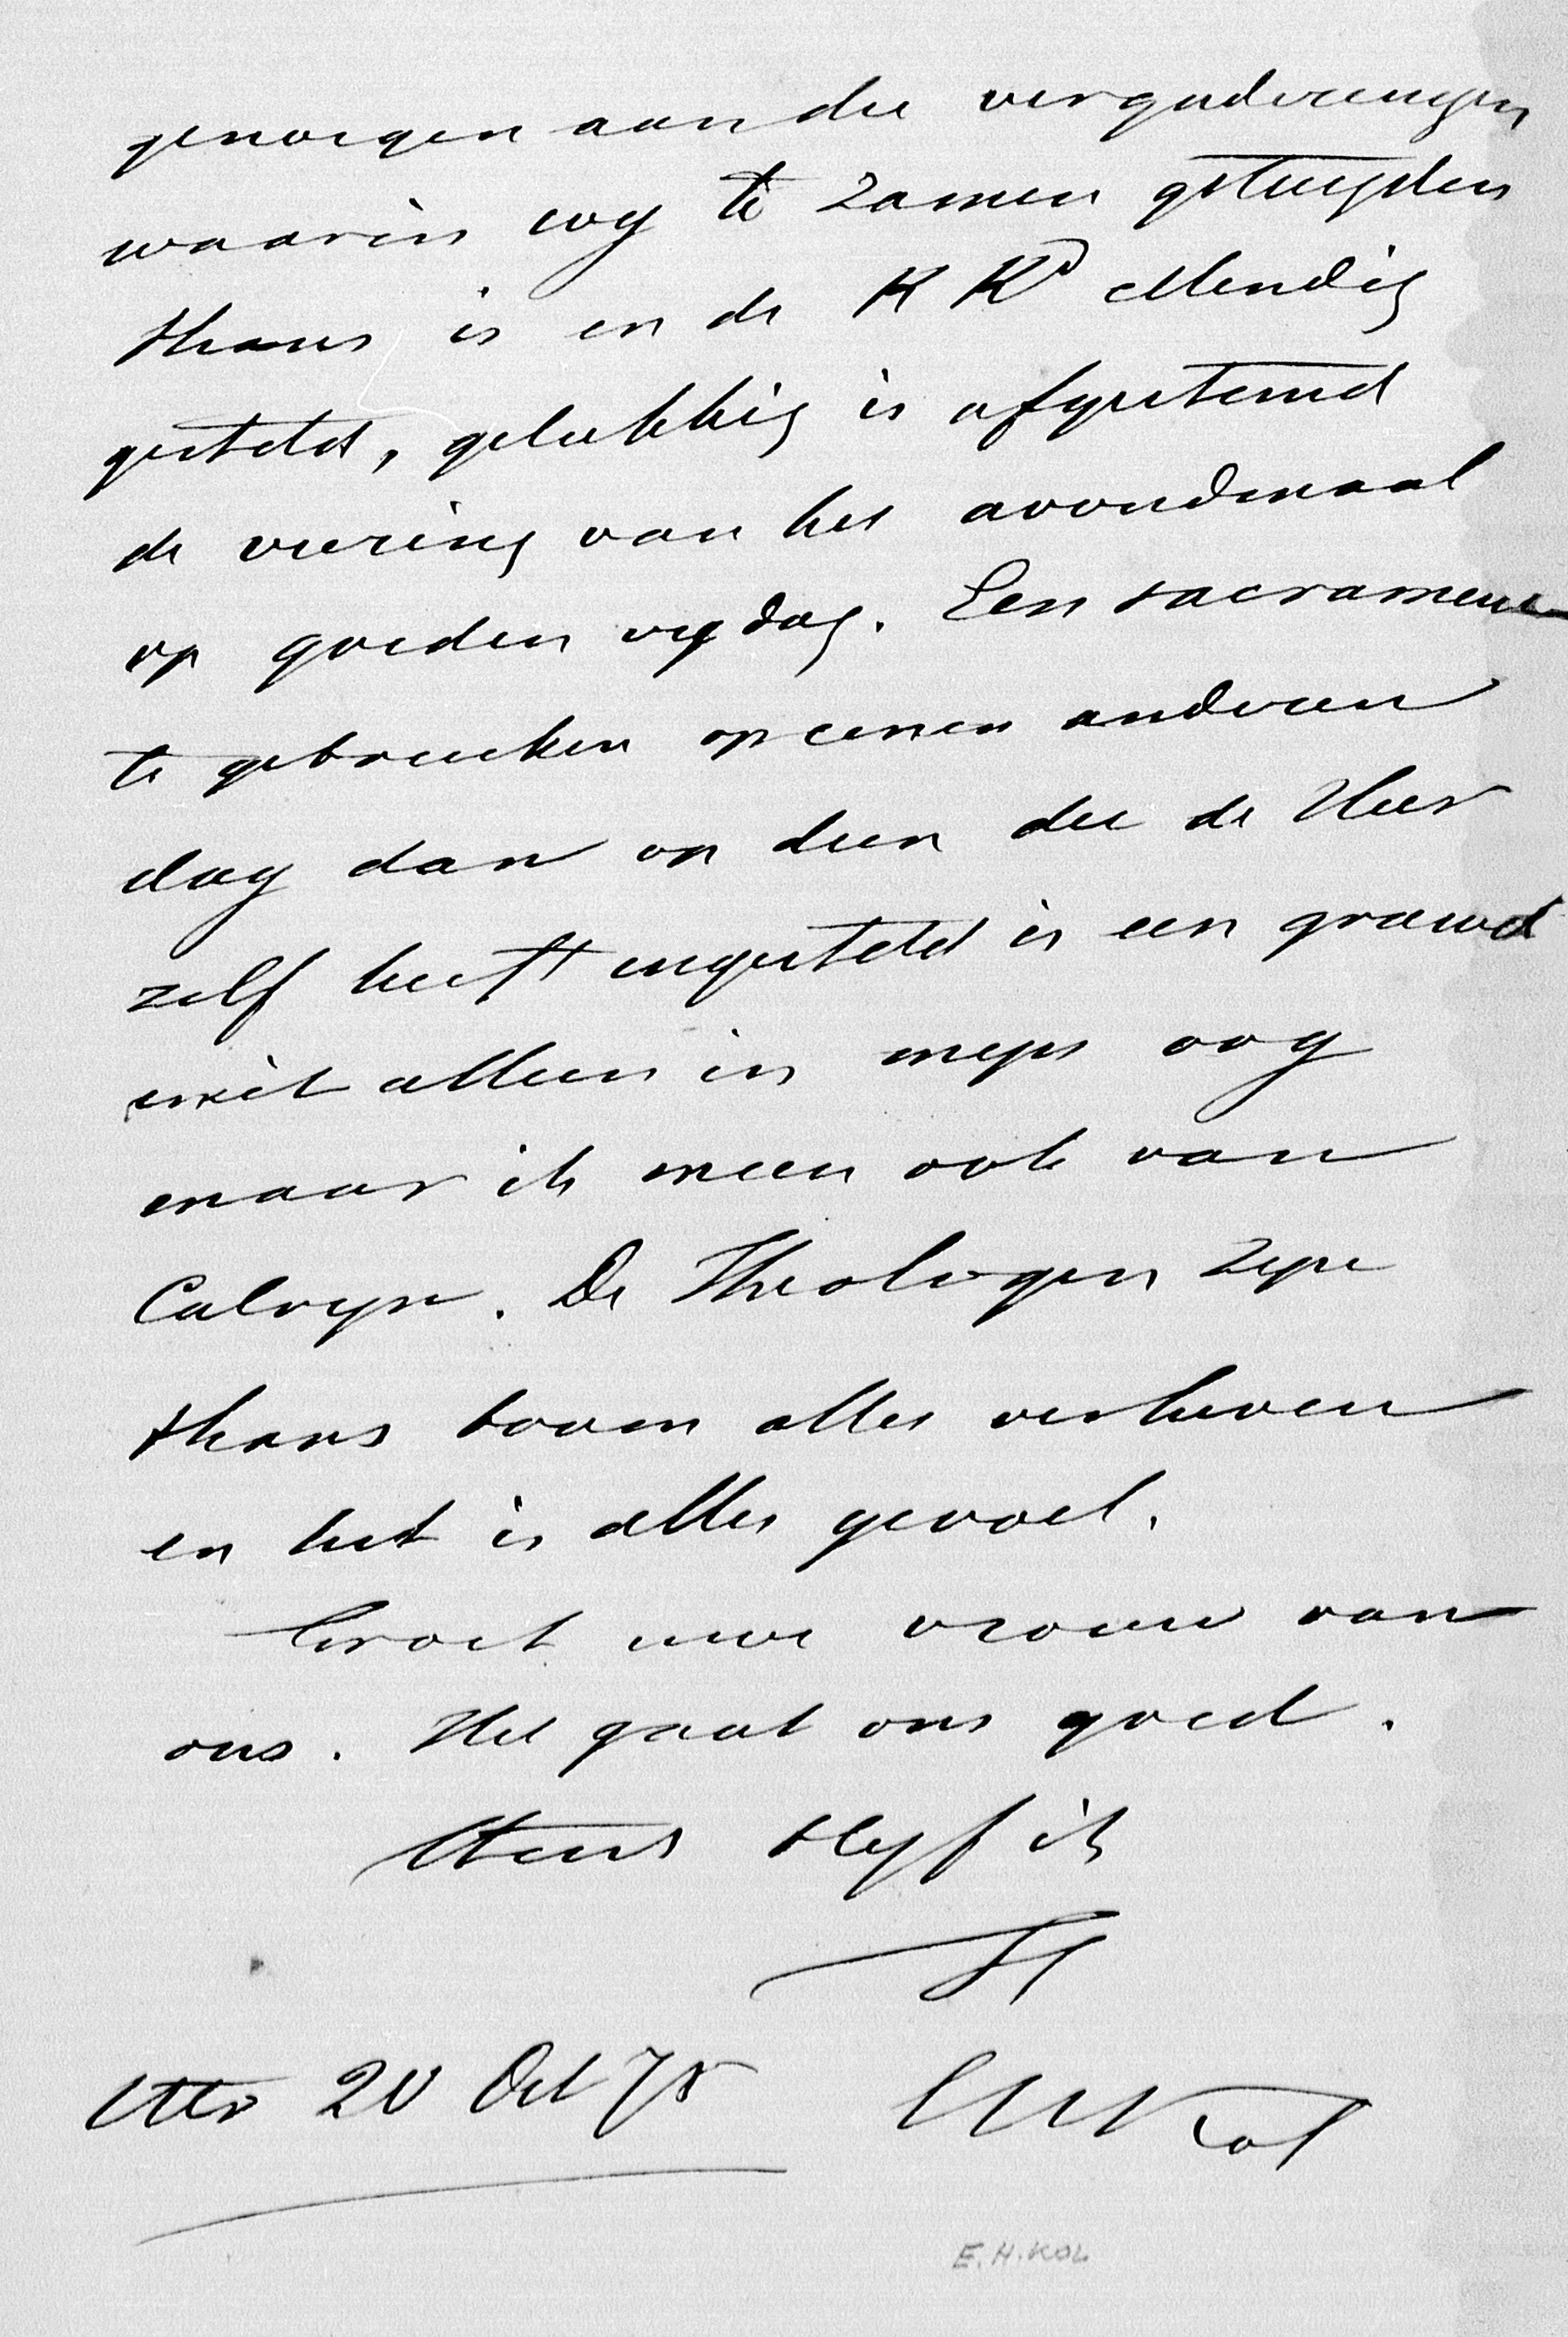 genoegen aan die vergaderingen
waarin wy te zamen
Thans is in de K Kd ellendig
gesteld, gelukkig is afgestemd
de viering van het avondmaal
op goeden vrydag. Een sacrament
te gebruiken op eenen anderen
dag dan op dien die de Heer
zelf heeft ingesteld is een gruwel
niet alleen in myn oog
maar ik meen ook van
Calvyn. De Theologen zyn
thans boven alles verheven
en het is alles gevoel.
Groet uwe vrouw van
ons. Het gaat ons goed.
Steeds blyf ik
Utr 20 Oct 75 EHKol
E.H.KOL